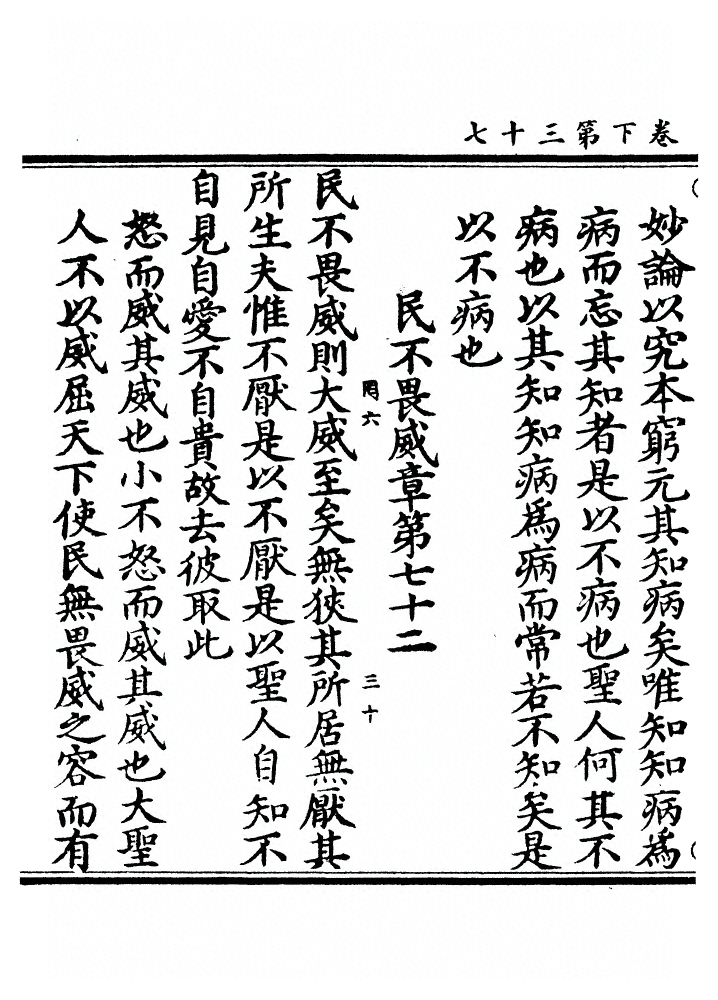 卷下第三十七
妙論以究本窮元其知病矣唯知知病爲
病而忘其知者是以不病也聖人何其不
病也以其知知病爲病而常若不知矣是
以不病也
民不畏威章第七十二
罔六
三十
民不畏威則大威至矣無狹其所居無厭其
所生夫惟不厭是以不厭是以聖人自知不
自見自愛不自貴故去彼取此
怒而威其威也小不怒而威其威也大聖
人不以威屈天下使民無畏威之容而有